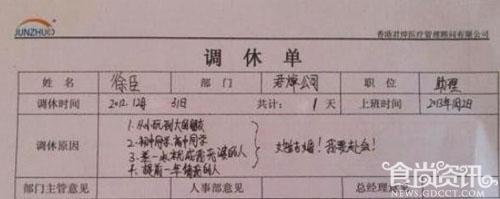 JUNZHUO
香港君焯医疗管理顾问有限公司
调休单
姓名 徐臣 部门 君焯公司 职位 助理
调休时间 2012.12月31日 共计：1天 上班时间 2013年1月2日
调休原因
1.从小玩到大的朋友
2.初中同学、高中同学
3.是一个被我的人
4.提前一年请我的人
她结婚！我要赴会！
部门主管意见 人事部意见 总经理
食尚资讯
WWW.GDCCT.COM